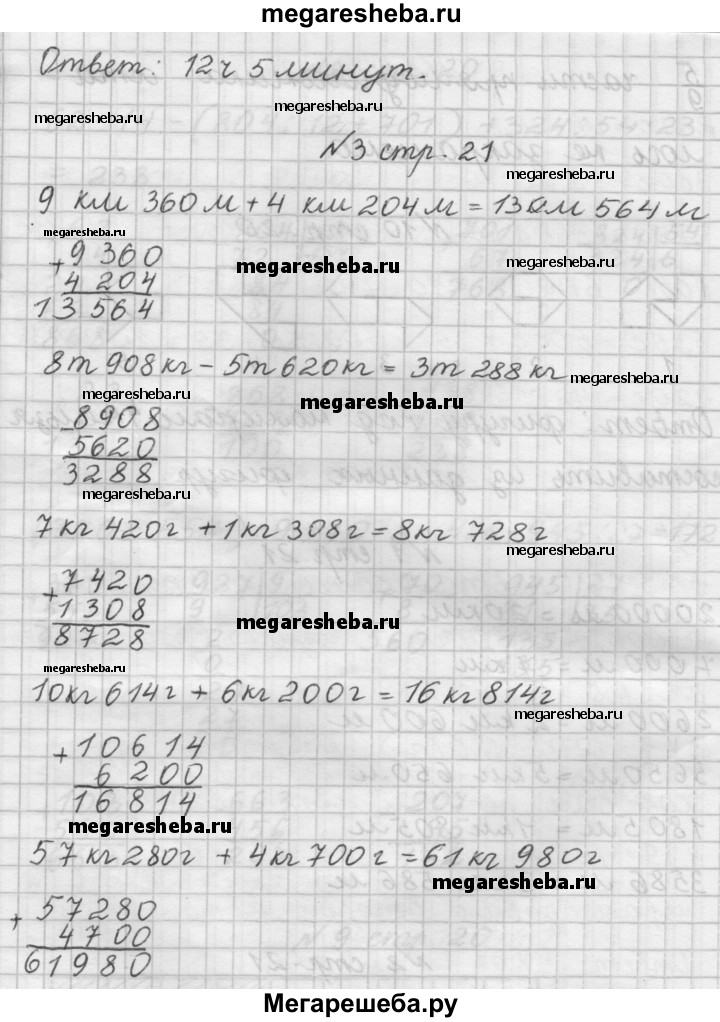 megaresheba.ru
Ответ: 12ч 5 минут.
megaresheba.ru
megaresheba.ru
№3 стр. 21
9 км 360 м + 4 км 204 м = 13 км 564 м
megaresheba.ru
+ 9 360
megaresheba.ru
megaresheba.ru
4 204
13 564
8 т 908 кг - 5 т 620 кг = 3 т 288 кг
megaresheba.ru
megaresheba.ru
- 8908
5620
3288
megaresheba.ru
7 кг 420 г + 1 кг 308 г = 8 кг 728 г
megaresheba.ru
+ 7420
1308
megaresheba.ru
8728
megaresheba.ru
10 кг 614 г + 6 кг 200 г = 16 кг 814 г
megaresheba.ru
+ 10614
6200
16814
megaresheba.ru
57 кг 280 г + 4 кг 700 г = 61 кг 980 г
megaresheba.ru
+ 57280
4700
61980
Мегарешеба.ру